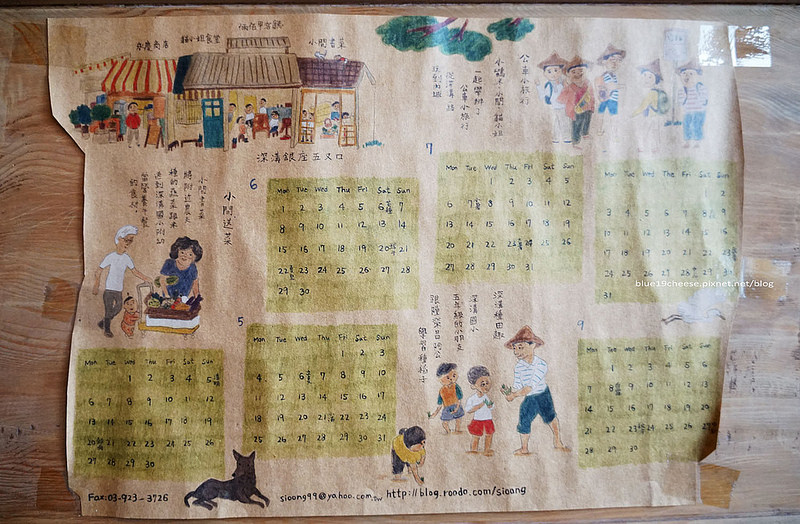 永慶商店
貓小姐食堂
小間書菜
深溝銀座五叉口
公車小旅行
小鶹米、小間、貓小姐
一起舉辦了
公車小旅行
小間送菜
小間書菜
將附近農夫
種的蔬菜跟米
送到深溝國小附幼
當營養午餐
的食材。
6
Mon Tue Wed Thu Fri Sat Sun
1 2 3 4 5 6 7
8 9 10 11 12 13 14
15 16 17 18 19 20 21
22 23 24 25 26 27 28
29 30
7
Mon Tue Wed Thu Fri Sat Sun
1 2 3 4 5
6 7 8 9 10 11 12
13 14 15 16 17 18 19
20 21 22 23 24 25 26
27 28 29 30 31
Mon Tue Wed Thu Fri Sat Sun
1 2
3 4 5 6 7 8 9
10 11 12 13 14 15 16
17 18 19 20 21 22 23
24 25 26 27 28 29 30
31
blue19cheese.pixnet.net/blog
深溝種田趣
深溝國小
五年級的小朋友
跟隨榮昌阿公
學習種稻子
Mon Tue Wed Thu Fri Sat Sun
1 2 3 4 5
6 7 8 9 10 11 12
13 14 15 16 17 18 19
20 21 22 23 24 25 26
27 28 29 30
5
Mon Tue Wed Thu Fri Sat Sun
1 2 3
4 5 6 7 8 9 10
11 12 13 14 15 16 17
18 19 20 21 22 23 24
25 26 27 28 29 30 31
9
Mon Tue Wed Thu Fri Sat Sun
1 2 3 4 5 6
7 8 9 10 11 12 13
14 15 16 17 18 19 20
21 22 23 24 25 26 27
28 29 30
Fax:03-923-3726
sioong99@yahoo.com.tw http://blog.roodo.com/sioong